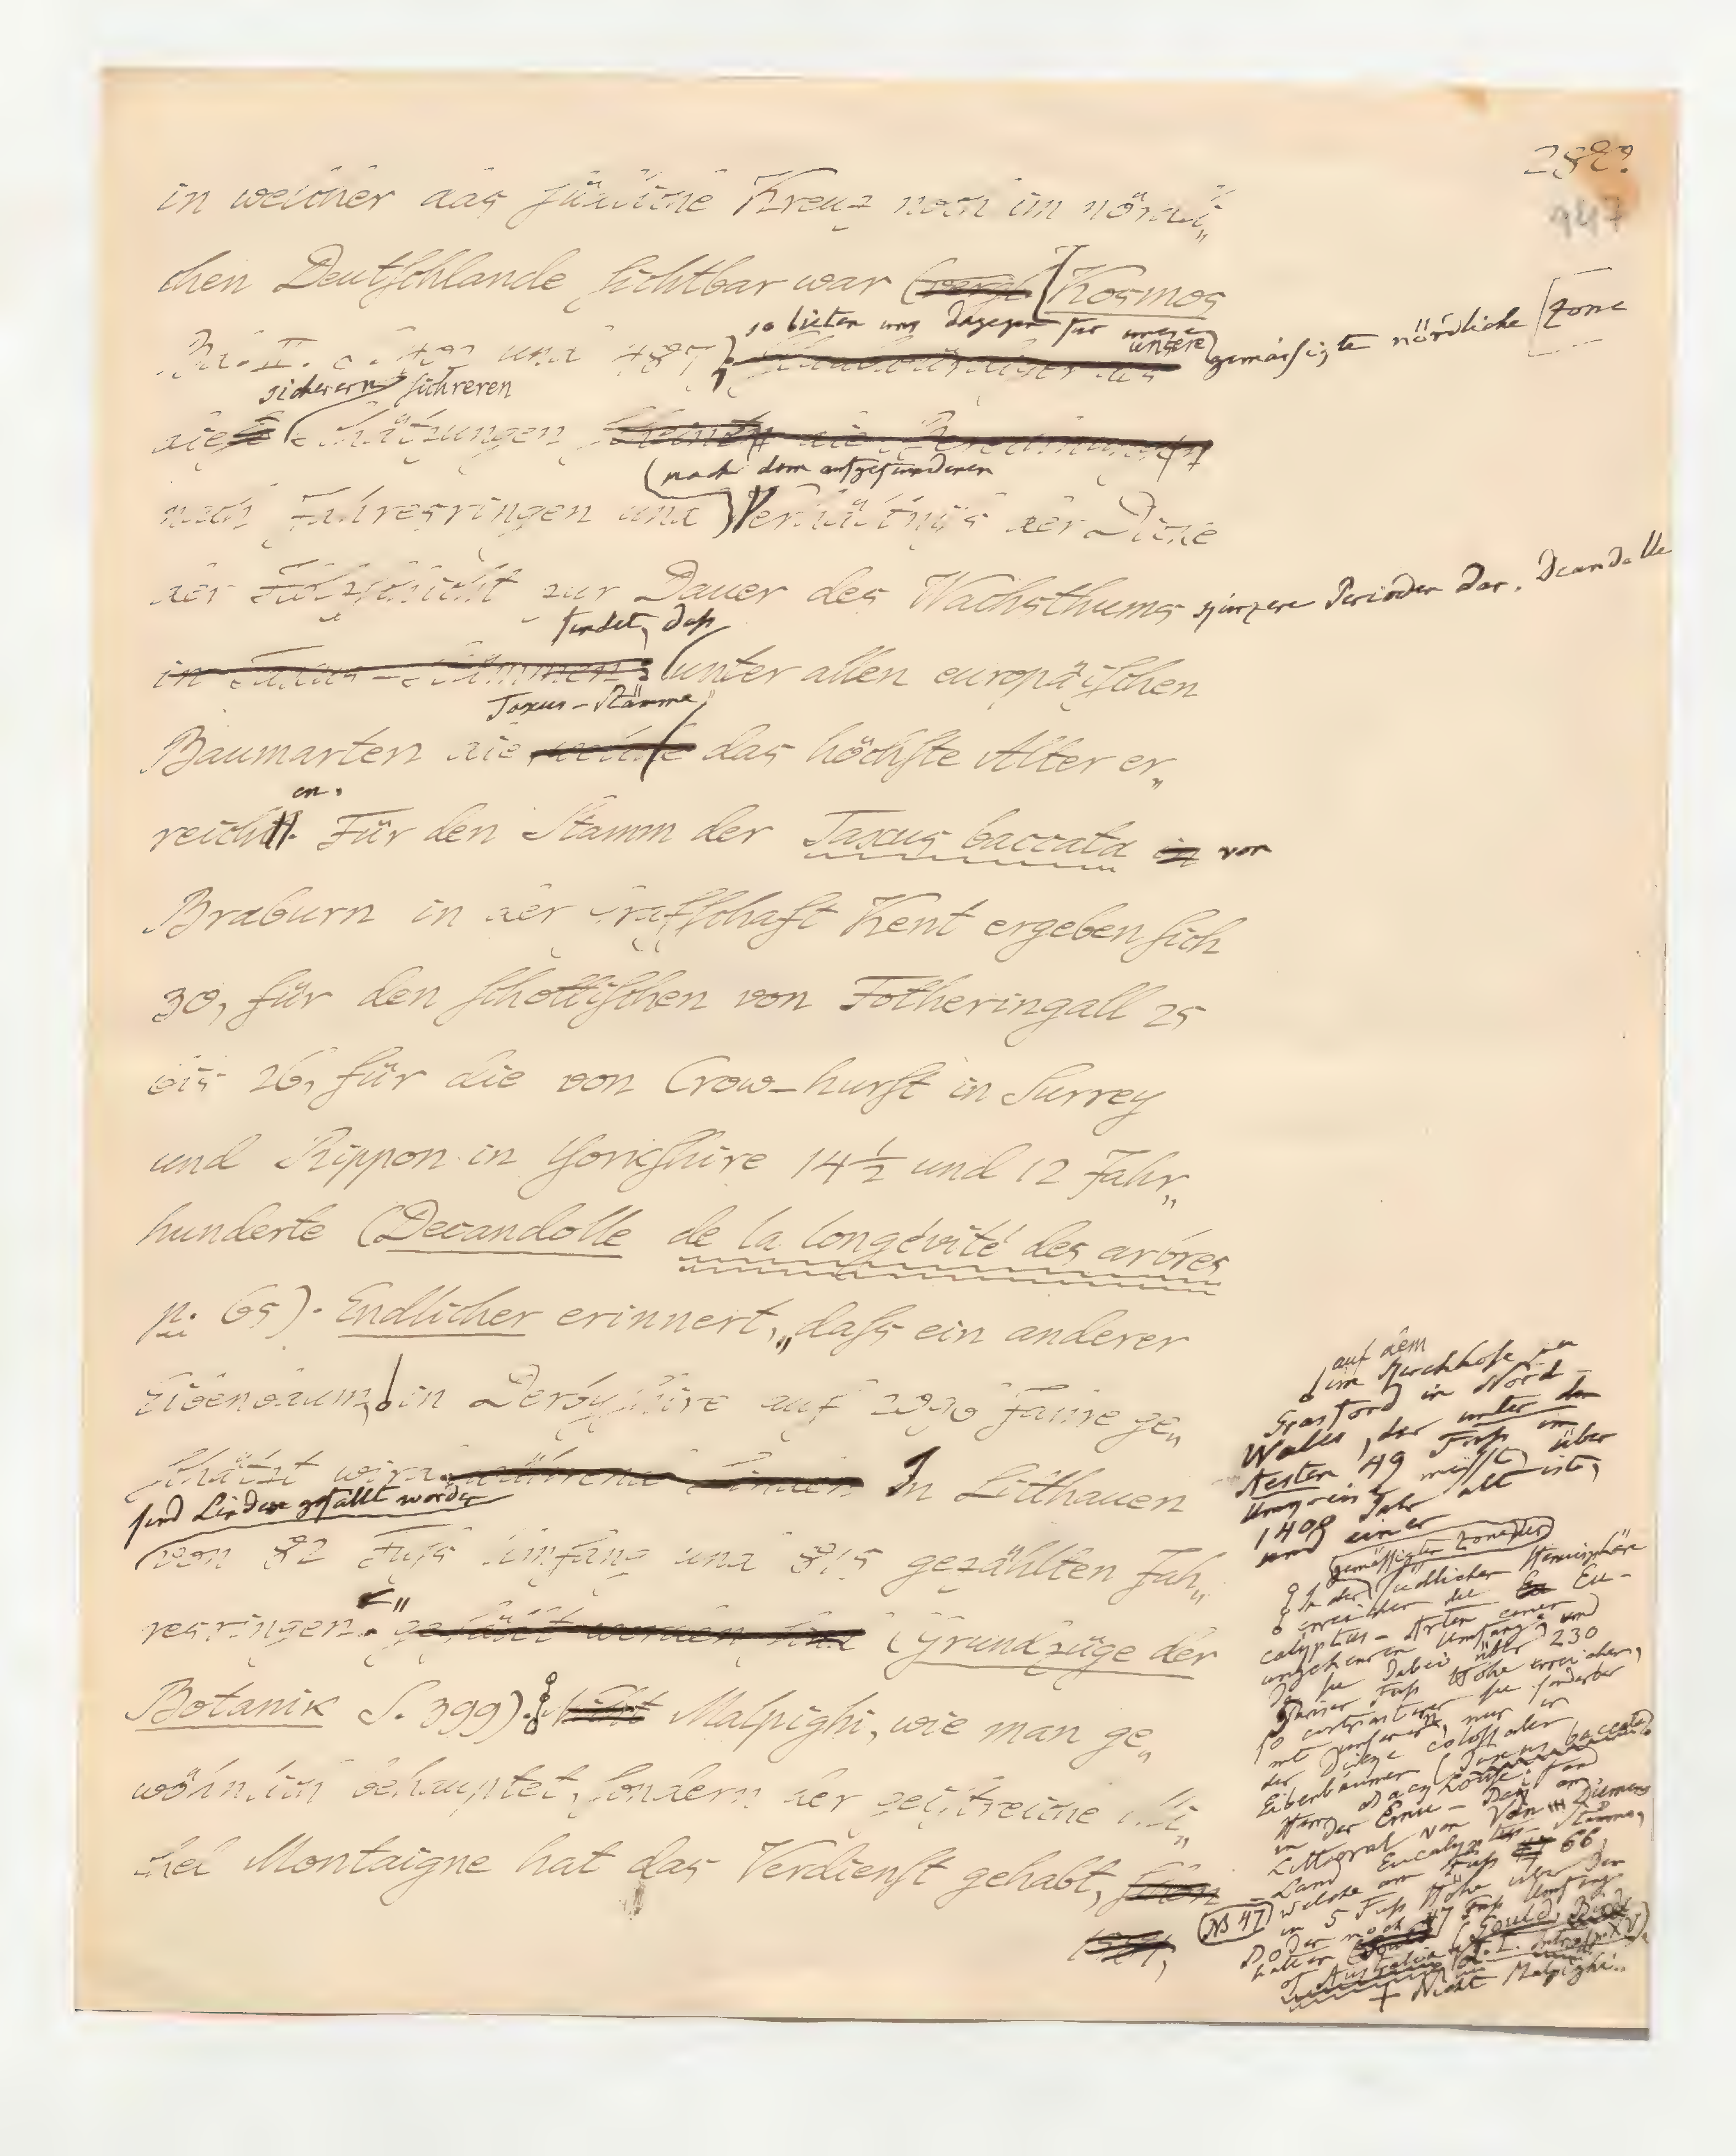 282?
947
in welcher das südliche Kreuz noch im nördli„
chen Deutschlande sichtbar war (vergl. Kosmos
so bieten uns dagegen für unsere gemässigte nördliche Zone
Bd. II. S. und 487);
sicheren sichreren
die Schätzungen
(nach dem aufgefundenen
nach Jahresringen und Verhältniss der Dicke
der Holzschicht zur Dauer des Wachsthums Perioden dar. Decandolle
findet, dass
in Taxus-Stämmen; unter allen europäischen
Taxus-Stämme
Baumarten die welche das höchste Alter er„
en.
reicht. Für den Stamm der Taxus baccata in von
Braburn in der Grafschaft Kent ergeben sich
30, für den schottischen von Fotheringall 25
bis 26, für die von Crow-hurst in Surrey
und Rippon in Yorkshire 14½ und 12 Jahr„
hunderte (Decandolle de la longévité des arbres
p. 65). Endlicher erinnert, „dass ein anderer
Eibenbaum in Derbyshire auf 2096 Jahre ge„
schätzt wird. während Linden In Litthauen
sind Linden gefällt worden
von 82 Fuss Umfang und 815 gezählten Jah„
resringen." gefällt worden sind (Grundzüge der
Botanik S. 399). Nicht Malpighi, wie man ge„
wöhnlich behauptet, sondern der geistreiche Mi„
chel Montaigne hat das Verdienst gehabt, schon
1581,
auf dem
im Kirchhofe zu
Grasford in Nord-
Wales, der unter den
Aesten 49 Fuss im
Umgreis misst, über
1400 Jahr alt ist,
und einer
gemässigten Zone der
In der südlichen Hemisphäre
erreichen die Eu-
calyptus-Arten einen
ungeheuren Umfang; und
da sie dabei über 230
Pariser Fuss Höhe erreichen,
so contrastiren sie sonderbar
mit unseren, nur in
der Dicke colossalen
Eibenbäumen (Taxus baccata).
fand
in der Emu-Bay am
Littoral von Van Diemens
-Land Eucalyptus-Stämme,
welche am Fuss 66,
in 5 Fuss Höhe über dem
Boden noch 47 Fuss Umfang
hatten (Gould, Birds
of Australia Vol. I. Introd. p. XV).
NB 47
+ Nicht Malpighi..